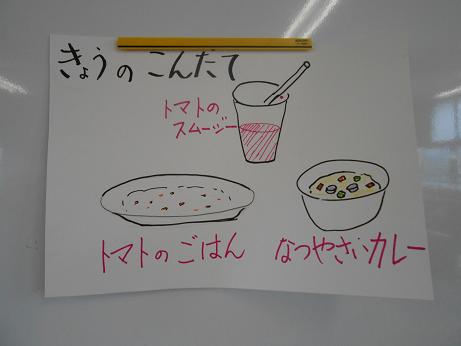 きょうの こんだて
トマトの
スムージー
トマトのごはん
なつやさいカレー